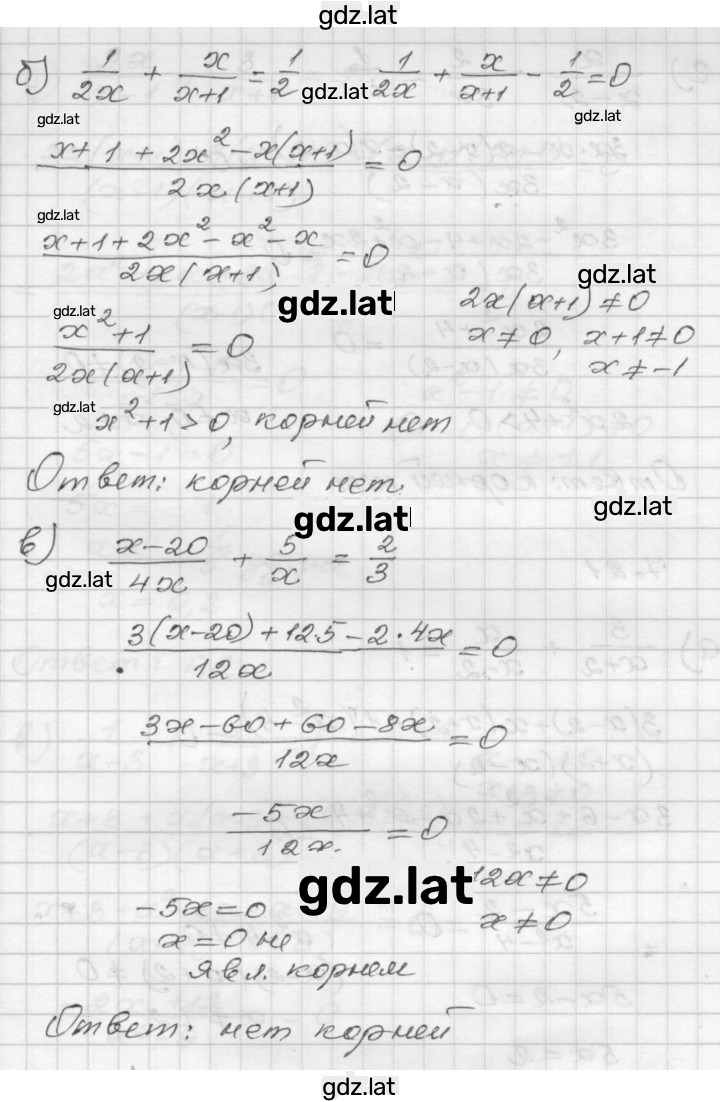 gdz.lat
б) 1/2x + x/x+1 = 1/2 gdz.lat 1/2x + x/x+1 - 1/2 = 0
gdz.lat gdz.lat
x+1+2x²-x(x+1)/2x(x+1) = 0
gdz.lat
x+1+2x²-x²-x/2x(x+1) = 0
gdz.lat
gdz.lat gdz.lat 2x(x+1)≠0
x²+1/2x(x+1) = 0 x≠0, x+1≠0
x≠-1
gdz.lat x²+1>0, корней нет
Ответ: корней нет.
gdz.lat gdz.lat
в) x-20/4x + 5/x = 2/3
gdz.lat
3(x-20)+12·5-2·4x/12x = 0
3x-60+60-8x/12x = 0
-5x/12x = 0
gdz.lat 12x≠0
-5x=0 x≠0
x=0 не
явл. корнем
Ответ: нет корней
gdz.lat